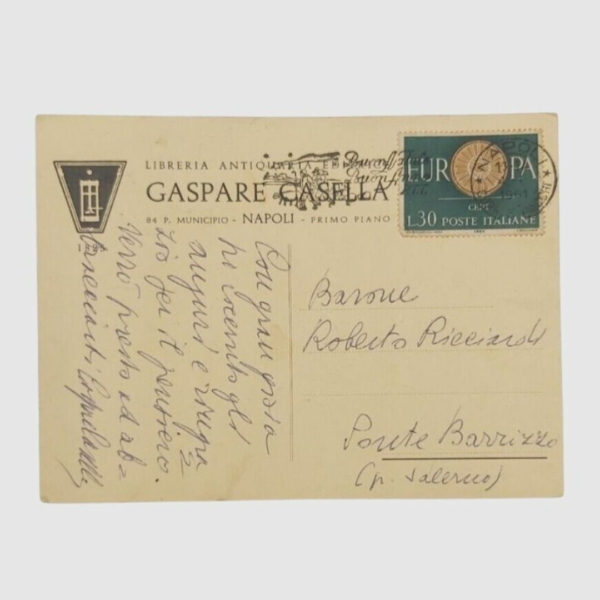 LIBRERIA ANTIQUARIA ED
GASPARE CASELLA
84 P. MUNICIPIO - NAPOLI - PRIMO PIANO
EUROPA
CEPT
L.30 POSTE ITALIANE
NAPOLI
Con gran gioia
ho ricevuto gli
auguri e ringra
zio per il pensiero.
Verrò presto ed ab=
Barone
Roberto Ricciardi
Ponte Barrizzo
(p. Salerno)